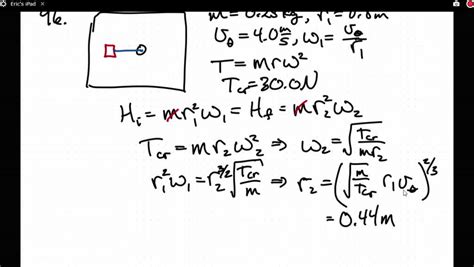 Eric's iPad
96.
m = 0.25 kg, r₁ = 0.8m
υ_θ = 4.0 m/s, ω₁ = υ_θ/r₁
T = mrω²
T_cr = 30.0N
H_i = mr₁²ω₁ = H_f = mr₂²ω₂
T_cr = mr₂ω₂² ⇒ ω₂ = √(T_cr/mr₂)
r₁²ω₁ = r₂^(3/2) √(T_cr/m) ⇒ r₂ = (√(m/T_cr) r₁υ_θ)^(2/3)
= 0.44m